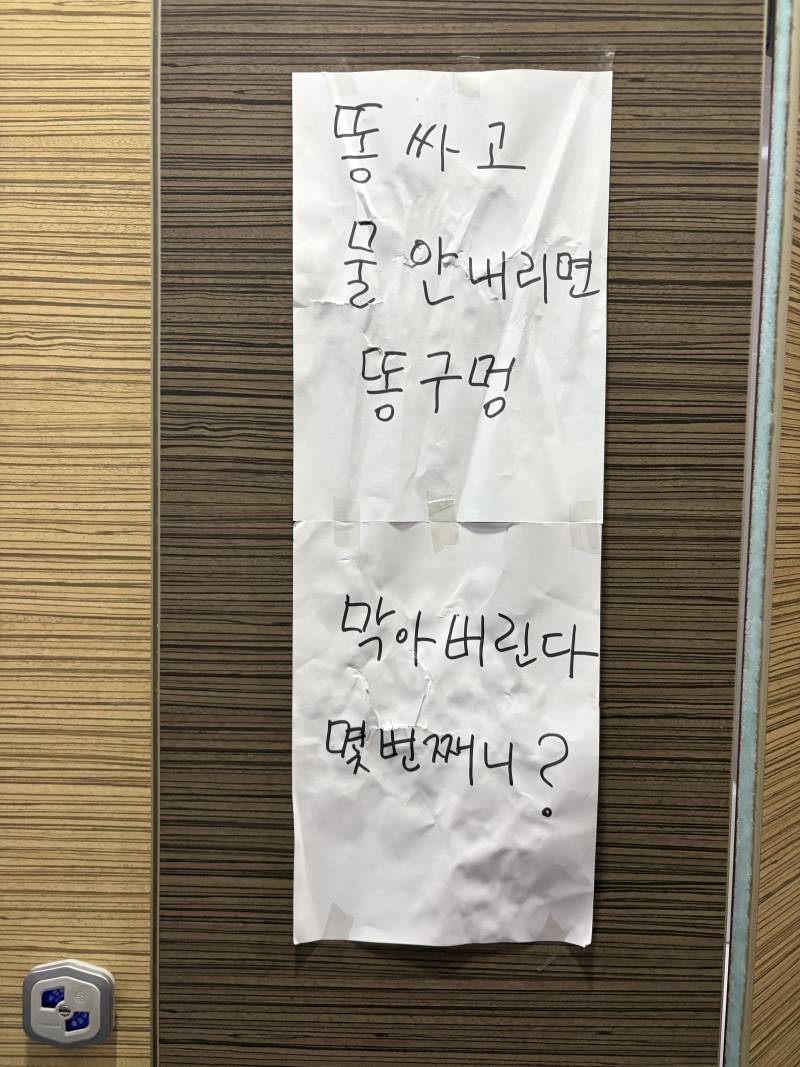 똥 싸고
물 안내리면
똥구멍
막아버린다
몇번째니?